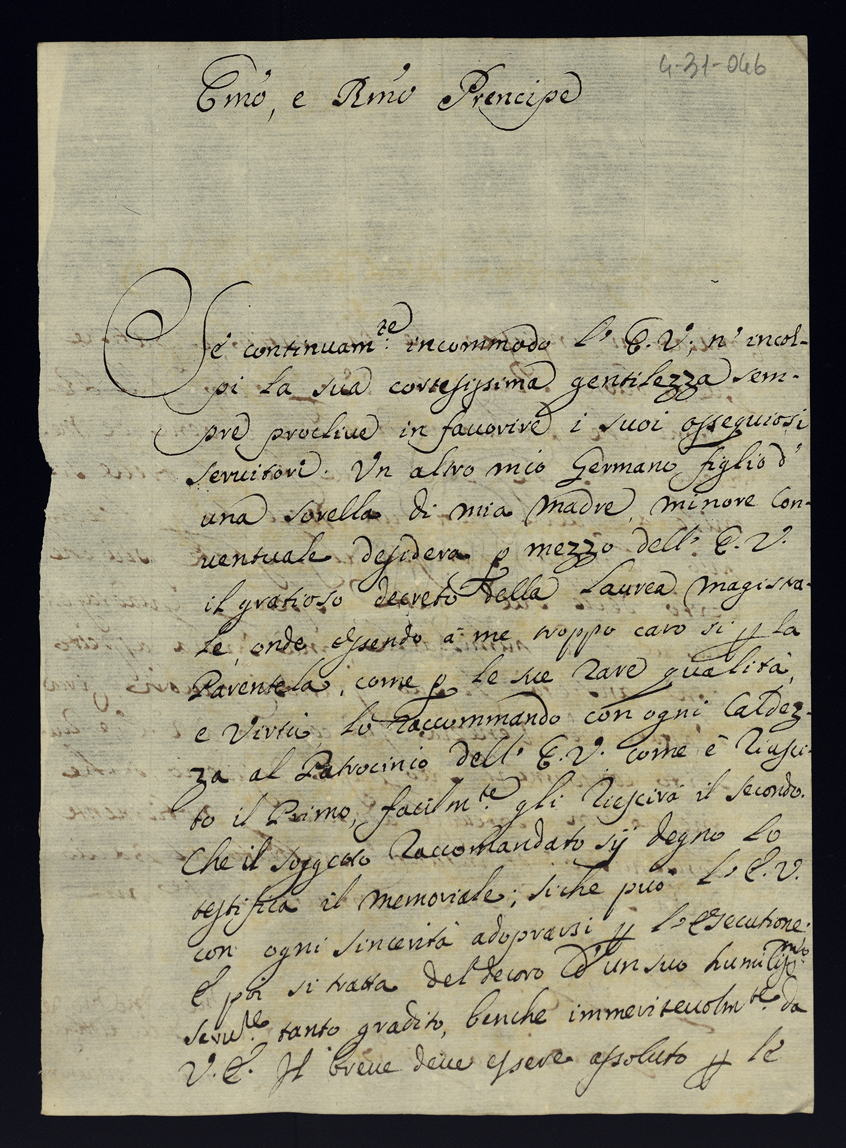 4-31-046
Emo, e Rmo Prencipe
Se continuamte: incommodo l' E. V. n' incol-
pi la sua cortesissima gentilezza sem-
pre proclive in favorire i suoi ossequiosi
servitori. Un altro mio Germano figlio d'
una sorella di mia Madre, minore Con-
ventuale desidera p mezzo dell' E. V.
il gratioso decreto della Laurea magistra-
le, onde essendo à me troppo caro si p la
Parentela, come p le sue rare qualità,
e Virtù, lo raccommando con ogni Caldez-
za al Patrocinio dell' E. V. come è riusci-
to il Primo, facilmte. gli riescirà il secondo.
Che il soggetto raccomandato sij degno lo
testifica il memoriale; siche può l' E. V.
con ogni sincerità adoprarsi p l' esecutione.
E poi si tratta del decoro d' un suo humilissmo
servre tanto gradito, benche immeritevolmte. da
V. E. Il breve deve essere assoluto p le